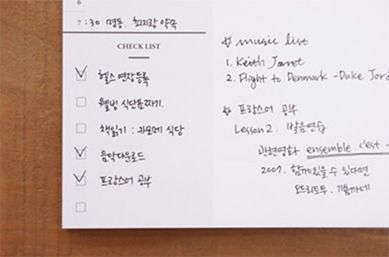 6
7:30 명동. 희지랑 약속
CHECK LIST
헬스 연장등록
웰빙 식단짜기.
책읽기 : 카모메 식당
음악다운로드
프랑스어 공부
☆ music list
1. Keith Jarret
2. Flight to Denmark - Duke Jord
☆ 프랑스어 공부
Lesson 2. 발음연습
관련영화 ensemble c'est -
2007. 함께 있을 수 있다면
오드리토투, 기욤까네